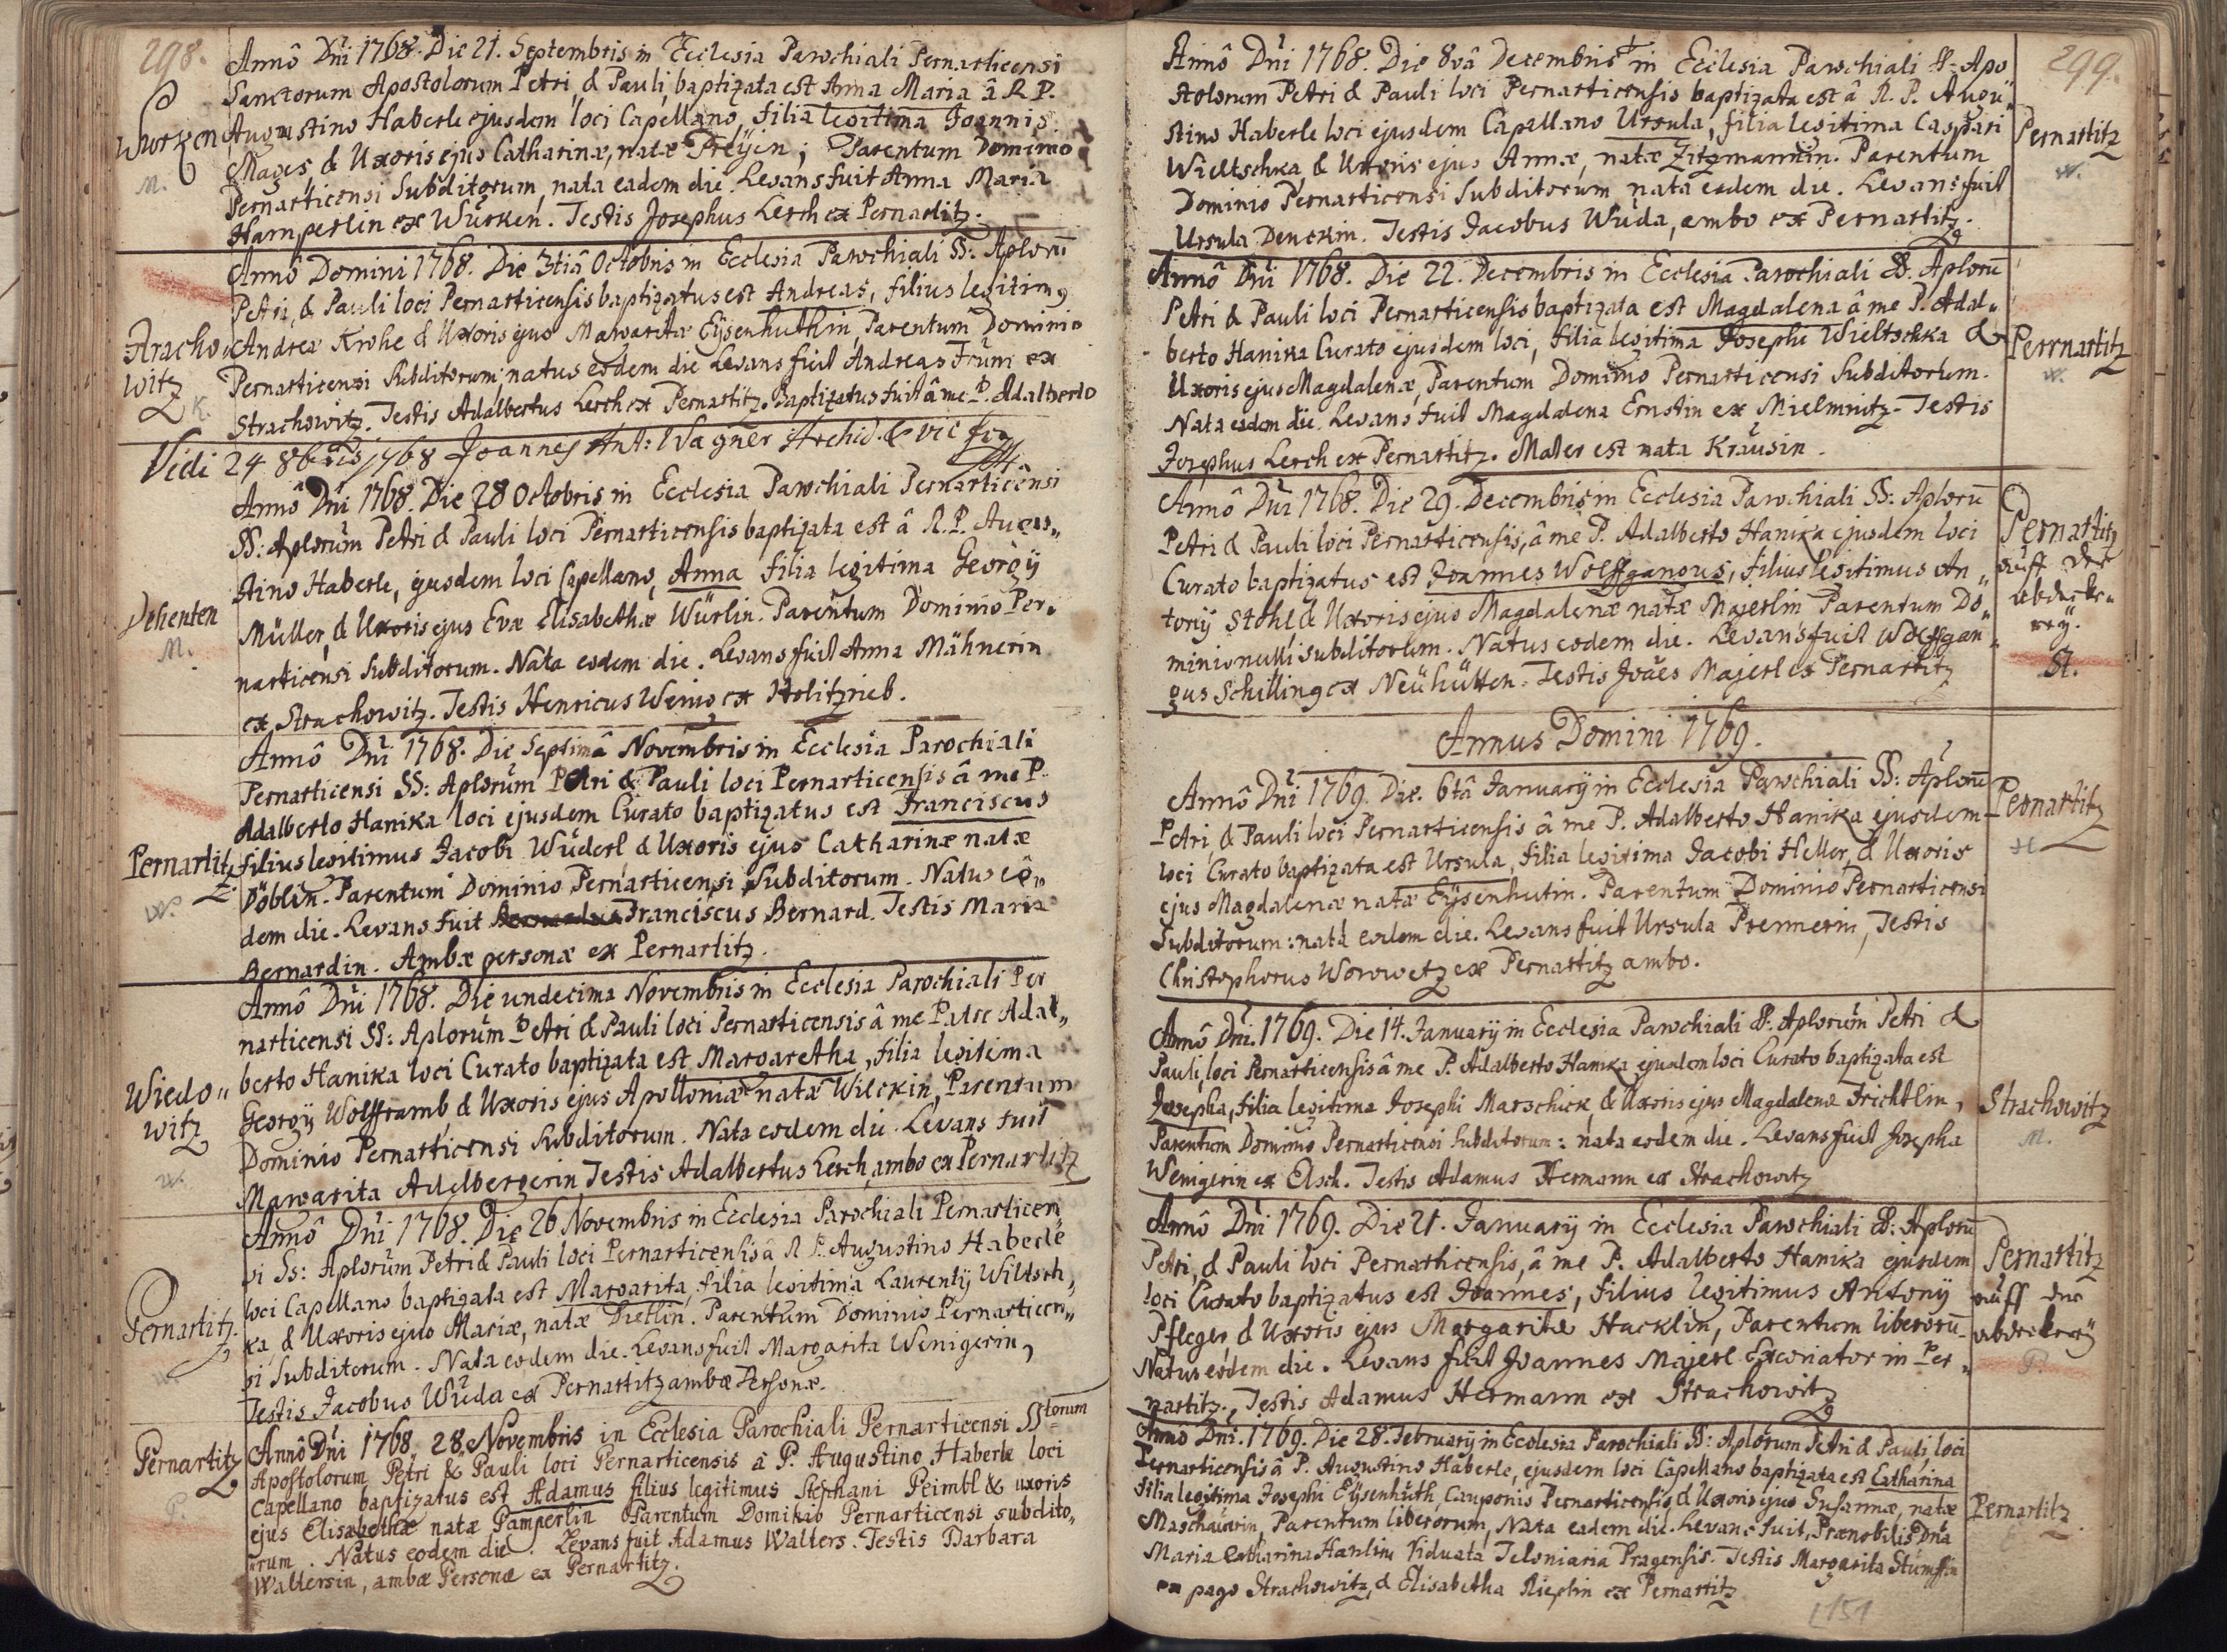 298.
Annô Dni 1768. Die 21. Septembris in Ecclesia Parochiali Pernarticensi
Sanctorum Apostolorum Petri, & Pauli, baptizata est Anna Maria â R. P.
Wurken Augustino Haberle ejusdem loci Capellano, filia legitima Joannis
M. Mages, & Uxoris ejus Catharinæ, natæ Preÿin; Parentum Dominio
Pernarticensi Subditorum, nata eadem die. Levans fuit Anna Maria
Hamperlin ex Würken. Testis Josephus Lerch ex Pernartitz.
Annô Domini 1768. Die 3tiâ Octobris in Ecclesia Parochiali SS: Aplorum
Petri, & Pauli loci Pernarticensis baptizatus est Andreas, filius legitimus
Stracho- Andreæ Krohe & Uxoris ejus Margaritæ Eÿsenhuthin, Parentum Dominio
witz Pernarticensi Subditorum, natus eodem die Levans fuit Andreas Frum ex
K. Strachowitz. Testis Adalbertus Lerch ex Pernartitz. Baptizatus fuit â me P. Adalberto
Vidi 24 8bris 1768 Joannes Ant: Wagner Archid. & vic for
Annô Dni 1768. Die 28 Octobris in Ecclesia Parochiali Pernarticensi
SS: Aplorum Petri & Pauli loci Pernarticensis baptizata est â R. P. Augus„
stino Haberle, ejusdem loci Capellano, Anna filia legitima Georgÿ
Dehenten Müller, & Uxoris ejus Evæ Elisabethæ Würlin. Parentum Dominio Per„
M. narticensi Subditorum. Nata eodem die. Levans fuit Anna Mähnerin
ex Strachowitz. Testis Henricus Wenig ex Holitzrieb.
Annô Dni 1768. Die Septimâ Novembris in Ecclesia Parochiali
Pernarticensi SS: Aplorum Petri & Pauli loci Pernarticensis â me P.
Adalberto Hanika loci ejusdem Curato baptizatus est Franciscus
Pernartitz filius legitimus Jacobi Wuderl & Uxoris ejus Catharinæ natæ
W. Döblin. Parentum Dominio Pernarticensi Subditorum. Natus eô„
dem die. Levans fuit Franciscus Bernard. Testis Maria
Bernardin. Ambæ personæ ex Pernartitz.
Annô Dni 1768. Die undecima Novembris in Ecclesia Parochiali Per
narticensi SS: Aplorum Petri & Pauli loci Pernarticensis â me Patre Adal„
Wiedo„ berto Hanika loci Curato baptizata est Margaretha, filia legitima
witz Georgÿ Wolfframb, & Uxoris ejus Apolloniæ natæ Wilckin, Parentum
W. Dominio Pernarticensi Subditorum. Nata eodem die. Levans fuit
Margarita Adelbergerin Testis Adalbertus Lerch, ambo ex Pernartitz
Annô Dni 1768. Die 26 Novembris in Ecclesia Parochiali Pernarticen
si Ss: Aplorum Petri & Pauli loci Pernarticensis â R. P. Augustino Haberle
loci Capellano baptizata est Margarita, filia legitima Laurentÿ Wiltsch„
Pernartitz. ka, & Uxoris ejus Mariæ, natæ Dietlin. Parentum Dominio Pernarticen„
W. si Subditorum. Nata eodem die. Levans fuit Margarita Wenigerin,
Testis Jacobus Wuda ex Pernartitz ambæ Personæ.
Pernartitz Annô Dni 1768. 28 Novembris in Ecclesia Parochiali Pernarticensi SStorum
Apostolorum Petri & Pauli loci Pernarticensis â P. Augustino Haberle loci
P. Capellano baptizatus est Adamus filius legitimus Stephani Peimbl & uxoris
ejus Elisabethæ natæ Pamperlin Parentum Dominio Pernarticensi subdito„
rum. Natus eodem die. Levans fuit Adamus Walters. Testis Barbara
Waltersin, ambæ Personæ ex Pernartitz.
299.
Annô Dni 1768. Die 8vâ Decembris in Ecclesia Parochiali SS. Apo
stolorum Petri & Pauli loci Pernarticensis baptizata est â R. P. Augu„
stino Haberle loci ejusdem Capellano Ursula, filia legitima Caspari Pernartitz
Wieltschka & Uxoris ejus Annæ, natæ Zitzmannin. Parentum W.
Dominio Pernarticensi Subditorum, nata eodem die. Levans fuit
Ursula Denckin. Testis Jacobus Wuda, ambo ex Pernartitz.
Annô Dni 1768. Die 22. Decembris in Ecclesia Parochiali SS. Aplorū
Petri & Pauli loci Pernarticensis baptizata est Magdalena â me P. Adal„
berto Hanika Curato ejusdem loci, filia legitima Josephi Wieltschka & Perrnartitz
Uxoris ejus Magdalenæ, Parentum Dominio Pernarticensi Subditorum. W.
Nata eodem die. Levans fuit Magdalena Ernstin ex Mielmnitz. Testis
Josephus Lerch ex Pernartitz. Mater est nata Krausin.
Annô Dni 1768. Die 29. Decembris in Ecclesia Parochiali SS: Aplorū
Petri & Pauli loci Pernarticensis, â me P. Adalberto Hanika ejusdem loci Pernartitz
Curato baptizatus est Joannes Wolffgangus, filius legitimus An„ auff der
tonÿ Stohl & Uxoris ejus Magdalenæ natæ Majerlin Parentum Do„ abdecke„
minio nulli subditorum. Natus eodem die. Levans fuit Wolffgan„ reÿ.
gus Schilling ex Neuhütten. Testis Joães Majerl ex Pernartitz St.
Annus Domini 1769.
Annô Dni 1769. Die. 6tâ Januarÿ in Ecclesia Parochiali SS: Aplorū
Petri, & Pauli loci Pernarticensis â me P. Adalberto Hanika ejusdem Pernartitz
loci Curato baptizata est Ursula, filia legitima Jacobi Heller, & Uxoris H
ejus Magdalenæ natæ Eÿsenhutin. Parentum Dominio Pernarticensi
Subditorum: nata eodem die. Levans fuit Ursula Prennerin, Testis
Christophorus Worowetz ex Pernartitz ambo.
Annô Dni. 1769. Die 14. Januarÿ in Ecclesia Parochiali SS. Aplorum Petri &
Pauli, loci Pernarticensis â me P. Adalberto Hanika ejusdem loci Curato baptizata est
Josepha, filia legitima Josephi Marschick, & Uxoris ejus Magdalenæ Frichtlin, Strachowitz
Parentum Dominio Pernarticensi Subditorum: nata eodem die. Levans fuit Josepha M.
Wenigerin ex Elsch. Testis Adamus Hermann ex Strachowitz
Annô Dni 1769. Die 21. Januarÿ in Ecclesia Parochiali SS: Aplorū
Petri, & Pauli loci Pernarticensis, â me P. Adalberto Hanika ejusdem Pernartitz
loci Curato baptizatus est Joannes, filius legitimus Antonÿ auff der
Pfleger, & Uxoris ejus Margaritæ Hacklin, Parentum liberorū abdeckereÿ
Natus eodem die. Levans fuit Joannes Majerl Excoriator in Per„ P.
nartitz., Testis Adamus Hermann ex Strachowitz
Annô Dni. 1769. Die 28. Februarÿ in Ecclesia Parochiali SS: Aplorum Petri & Pauli, loci
Pernarticensis â P. Augustino Haberle, ejusdem loci Capellano baptizata est Catharina
filia legitima Josephi Eÿsenhuth, Cauponis Pernarticensis, & Uxoris ejus Susannæ, natæ Pernartitz
Maschauerin, Parentum liberorum, Nata eadem die. Levans fuit, Prænobilis Dna
Maria Catharina Hanlin Viduata Teloniaria Pragensis. Testis Margarita Stumffin
ex pago Strachowitz, & Elisabetha Rieplin ex Pernartitz
151